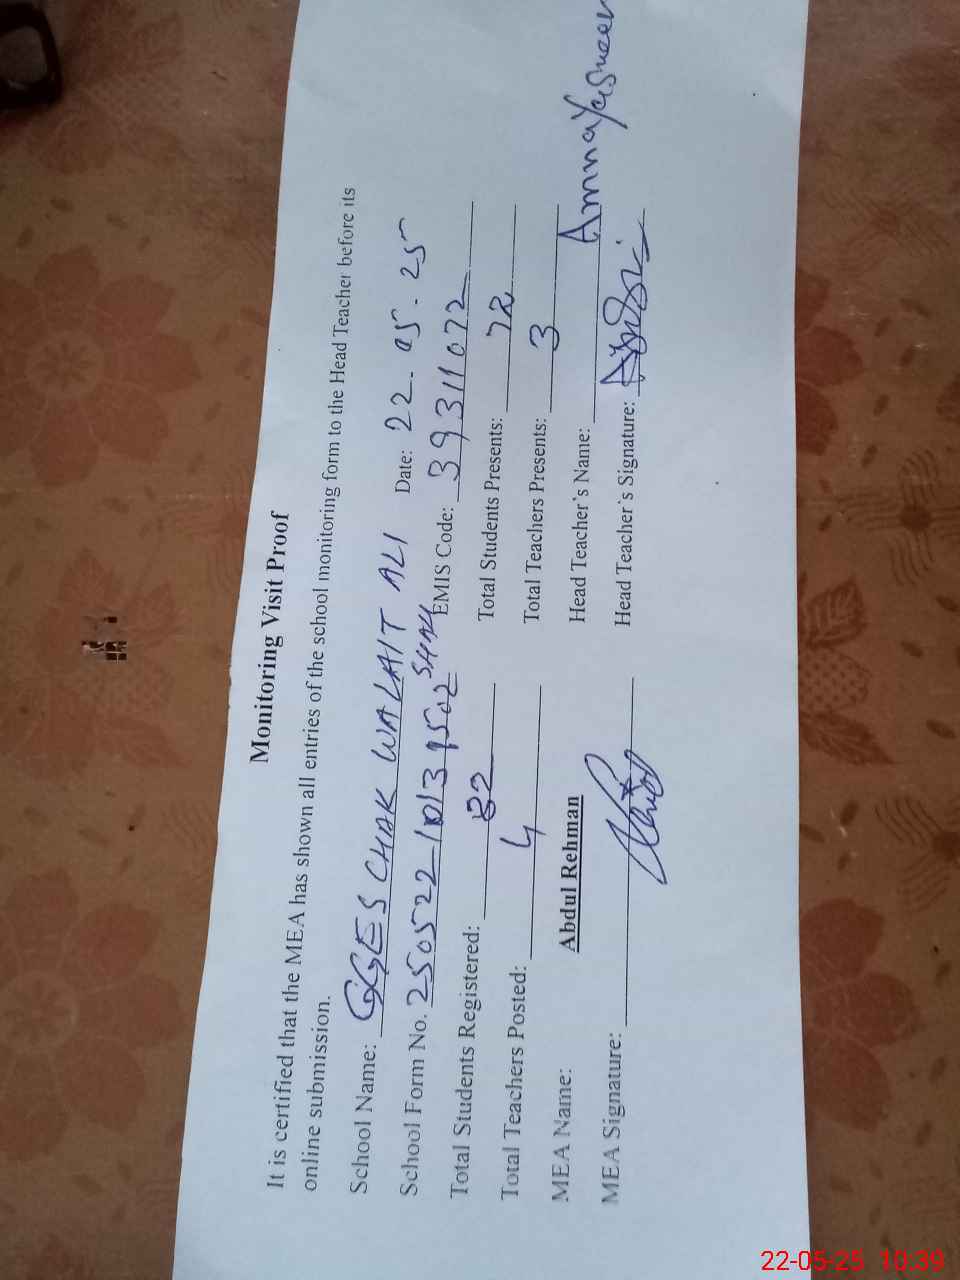 Monitoring Visit Proof
It is certified that the MEA has shown all entries of the school monitoring form to the Head Teacher before its
online submission.
School Name: GGES CHAK WALAIT ALI SHAH Date: 22.05.25
School Form No. EMIS Code: 39311072
Total Students Registered: 82 Total Students Presents: 72
Total Teachers Posted: 4 Total Teachers Presents: 3
MEA Name: Abdul Rehman Head Teacher's Name: Amna Yasmeen
MEA Signature: Head Teacher's Signature:
22-05-25 10:39